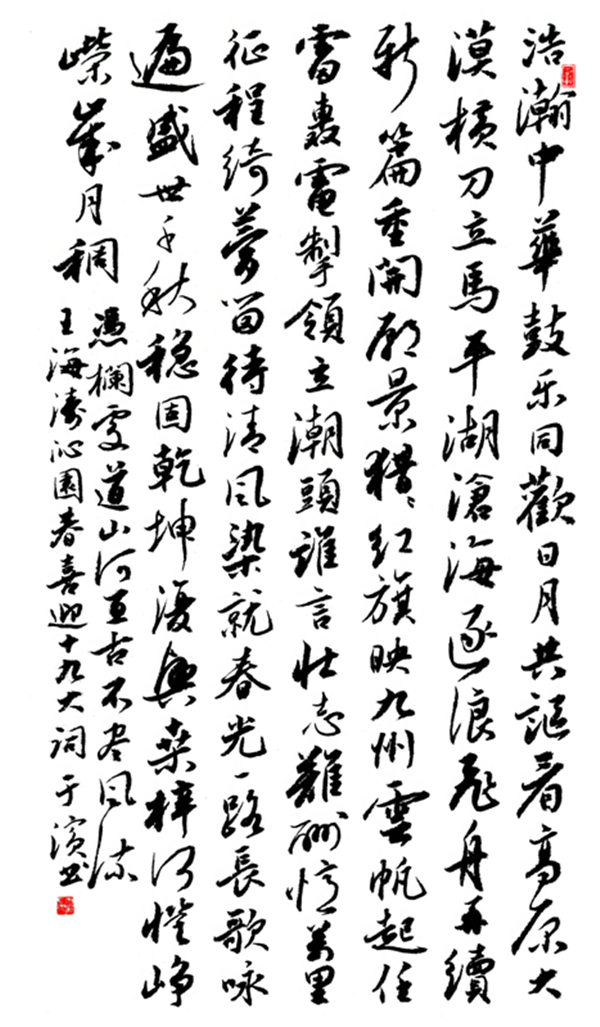 浩瀚中華鼓乐同歡日月共謳看高原大
漠橫刀立馬平湖滄海逐浪飛舟再續
新篇重開願景獵〻红旗映九州雲帆起任
雷轟電掣領立潮頭誰言壮志難酬憶萬里
征程綺夢留待清风染就春光一路長歌咏
遍盛世千秋穩固乾坤復興桑梓何崢
嶸歲月稠 憑欄處道山河亘古不尽风流
王海濤沁園春喜迎十九大词于濱书